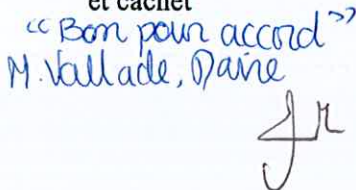 et cachet
"Bon pour accord"
M. Vallade, Maire